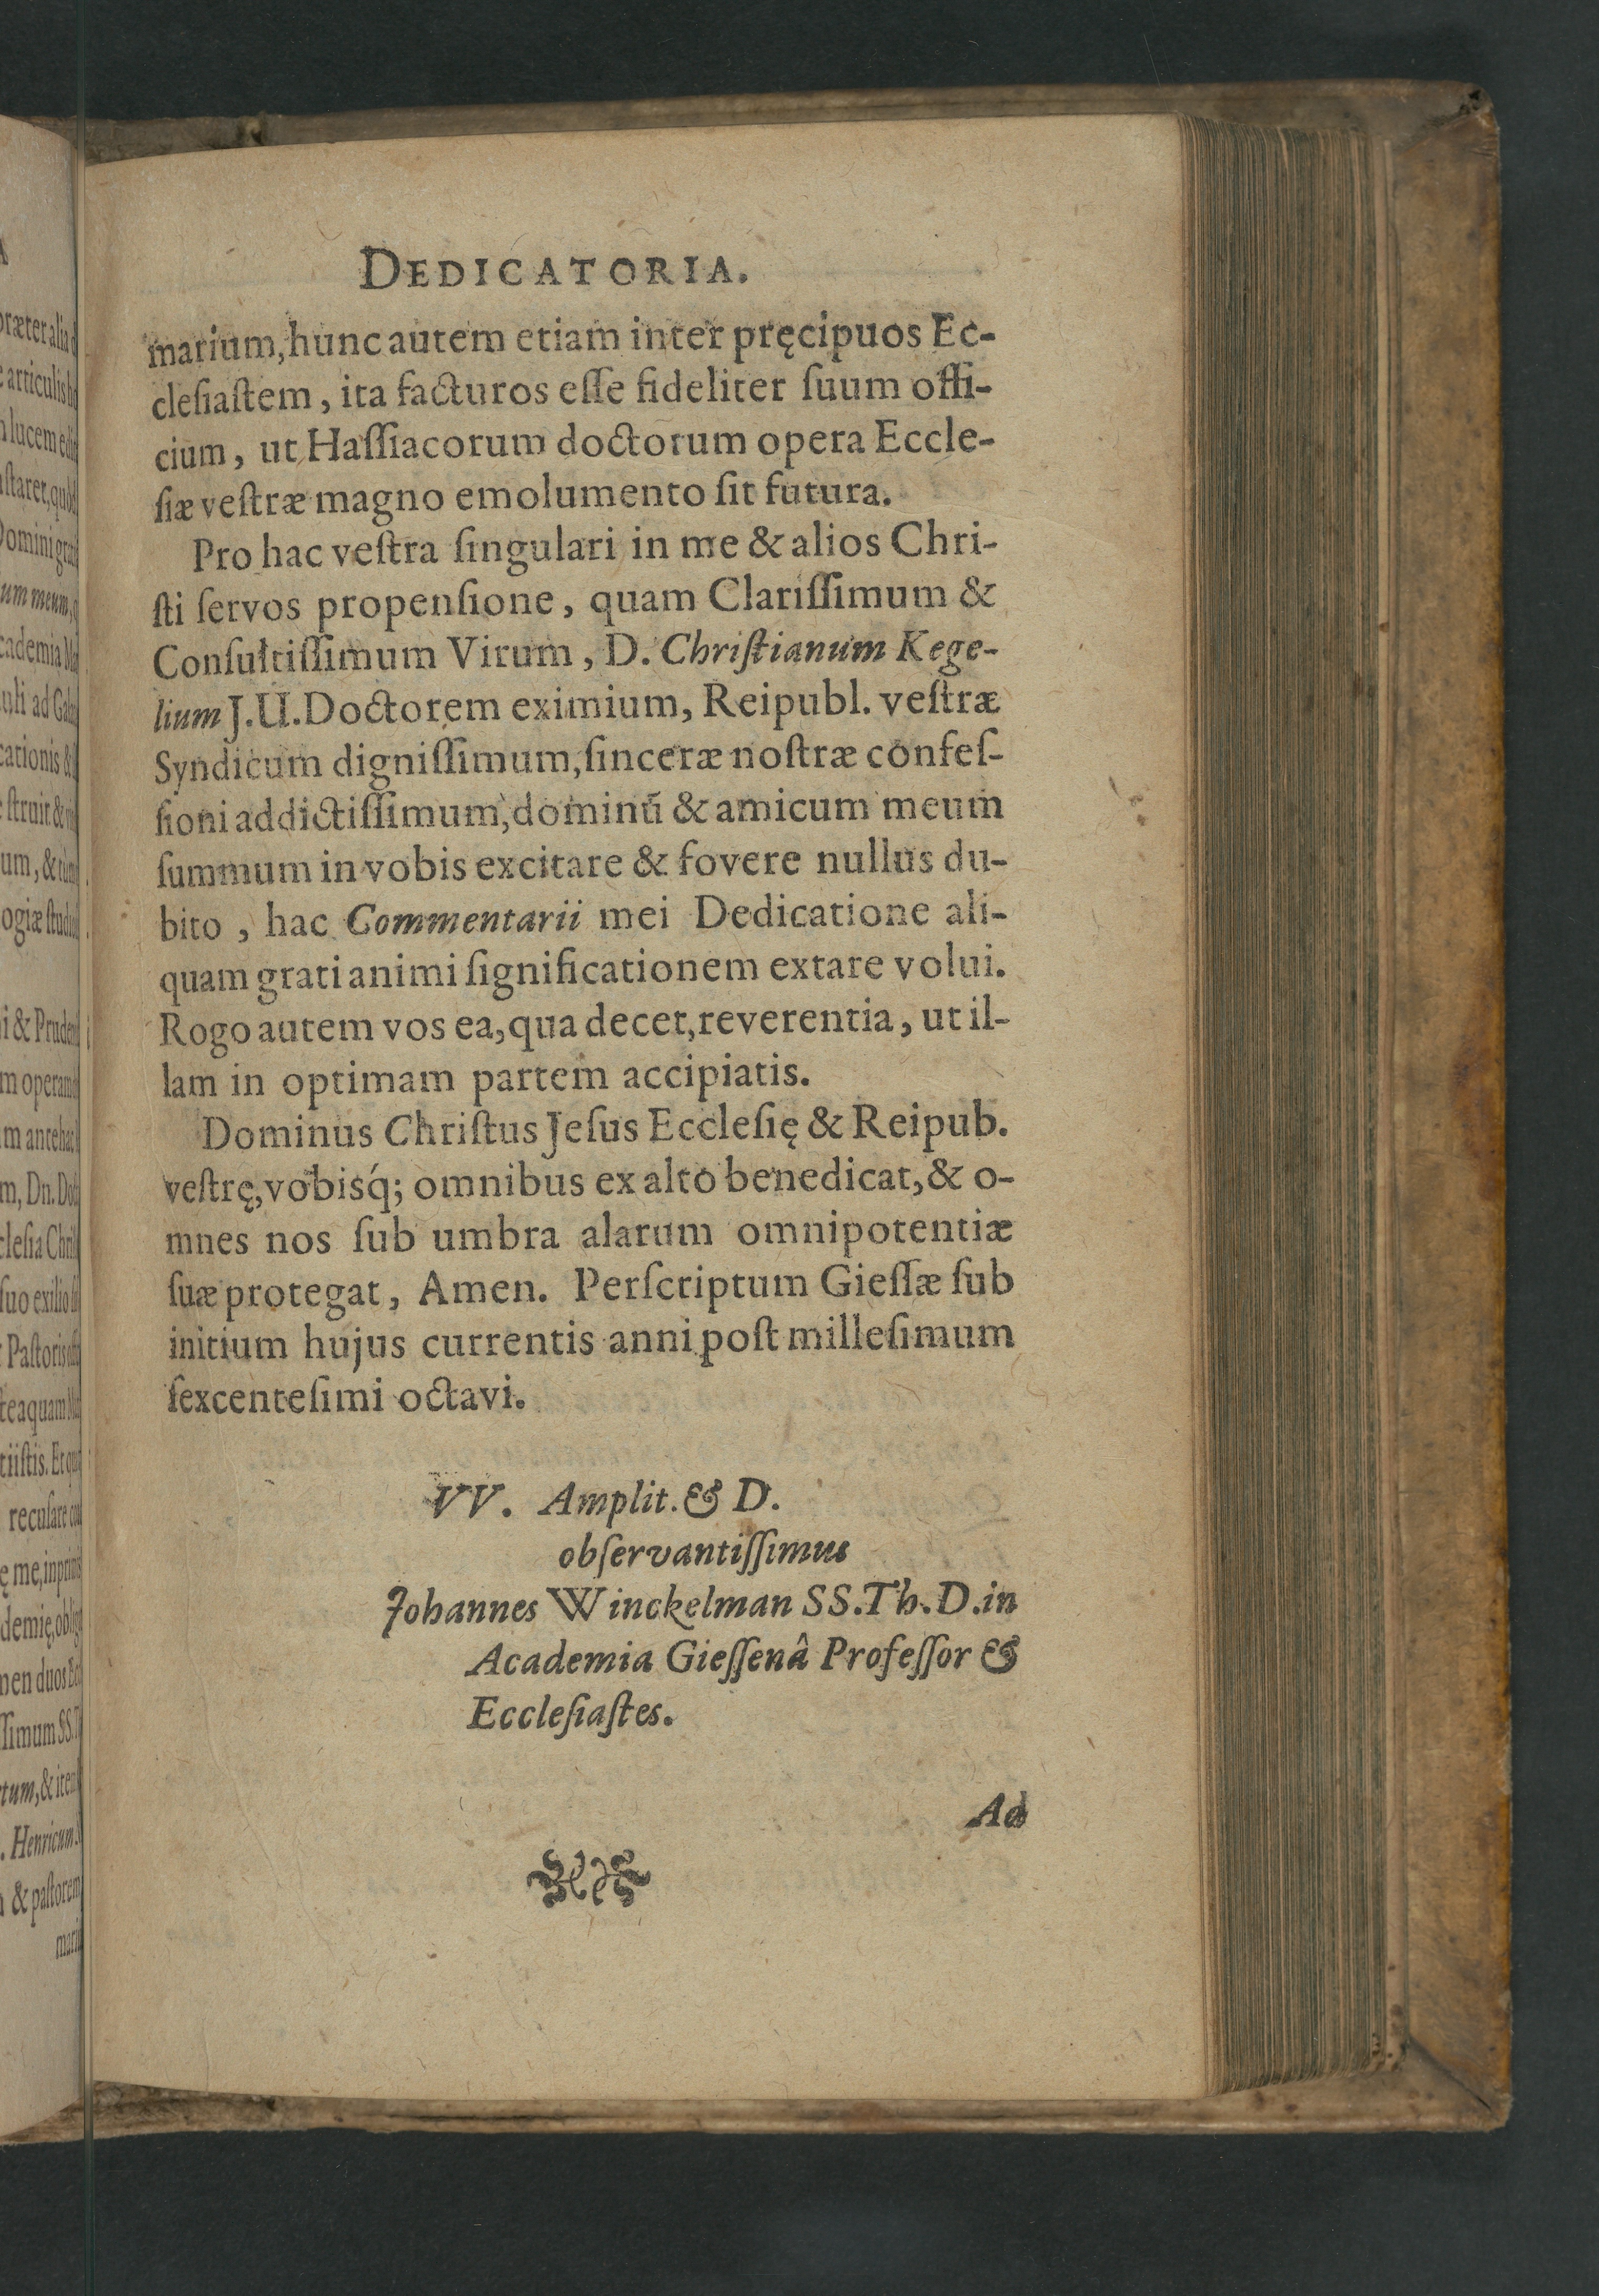 DEDICATORIA.
marium, hunc autem etiam inter pręcipuos Ec-
cleſiaſtem, ita facturos eſſe fideliter ſuum offi-
cium, ut Haſſiacorum doctorum opera Eccle-
ſiæ veſtræ magno emolumento ſit futura.
Pro hac veſtra ſingulari in me & alios Chri-
ſti ſervos propenſione, quam Clariſſimum &
Conſultiſſimum Virum, D. Chriſtianum Kege-
lium J.U. Doctorem eximium, Reipubl. veſtræ
Syndicum digniſſimum, ſinceræ noſtræ confeſ-
ſioni addictiſſimum, dominū & amicum meum
ſummum in vobis excitare & fovere nullus du-
bito, hac Commentarii mei Dedicatione ali-
quam grati animi ſignificationem extare volui.
Rogo autem vos ea, qua decet, reverentia, ut il-
lam in optimam partem accipiatis.
Dominus Chriſtus Jeſus Eccleſię & Reipub.
veſtrę, vobisq́; omnibus ex alto benedicat, & o-
mnes nos ſub umbra alarum omnipotentiæ
ſuæ protegat, Amen. Perſcriptum Gieſſæ ſub
initium hujus currentis anni poſt milleſimum
ſexcenteſimi octavi.
VV. Amplit. & D.
obſervantiſſimus
Johannes Winckelman SS.Th.D. in
Academia Gieſſenâ Profeſſor &
Eccleſiaſtes.
Ad